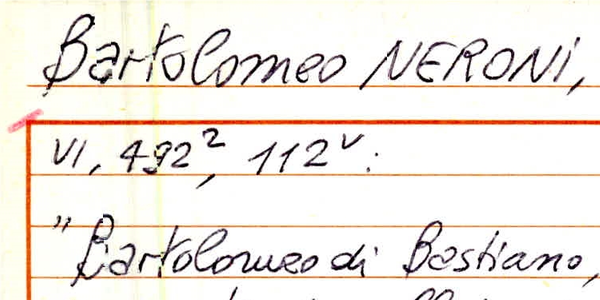 Bartolomeo NERONI,
VI, 492², 112ᵛ:
"Bartolomeo di Bastiano,